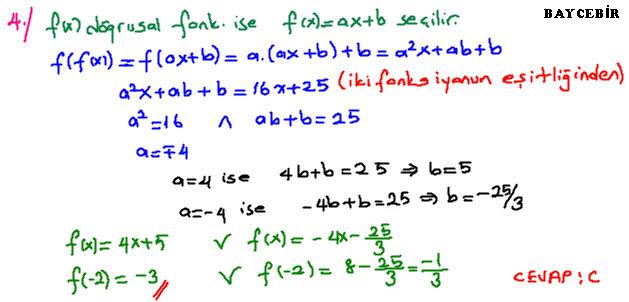 BAYCEBİR
4./ f(x) doğrusal fonk. ise f(x)=ax+b seçilir.
f(f(x)) = f(ax+b) = a.(ax+b)+b = a²x+ab+b
a²x+ab+b = 16x+25 (iki fonksiyonun eşitliğinden)
a²=16 ∧ ab+b=25
a=∓4
a=4 ise 4b+b=25 ⇒ b=5
a=-4 ise -4b+b=25 ⇒ b=-25/3
f(x)=4x+5 ∨ f(x)=-4x-25/3
f(-2)=-3 ∨ f(-2)=8-25/3=-1/3
CEVAP:C